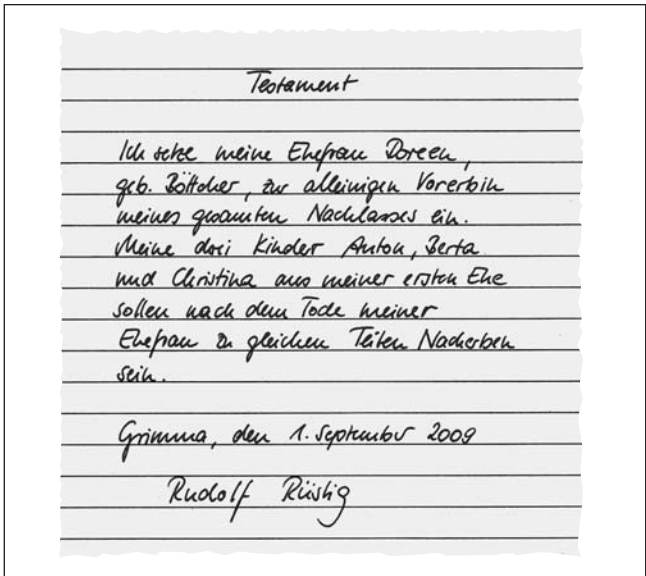 Testament
Ich setze meine Ehefrau Doreen,
geb. Böttcher, zur alleinigen Vorerbin
meines gesamten Nachlasses ein.
Meine drei Kinder Anton, Berta
und Christina aus meiner ersten Ehe
sollen nach dem Tode meiner
Ehefrau zu gleichen Teilen Nacherben
sein.
Grimma, den 1. September 2009
Rudolf Rüstig